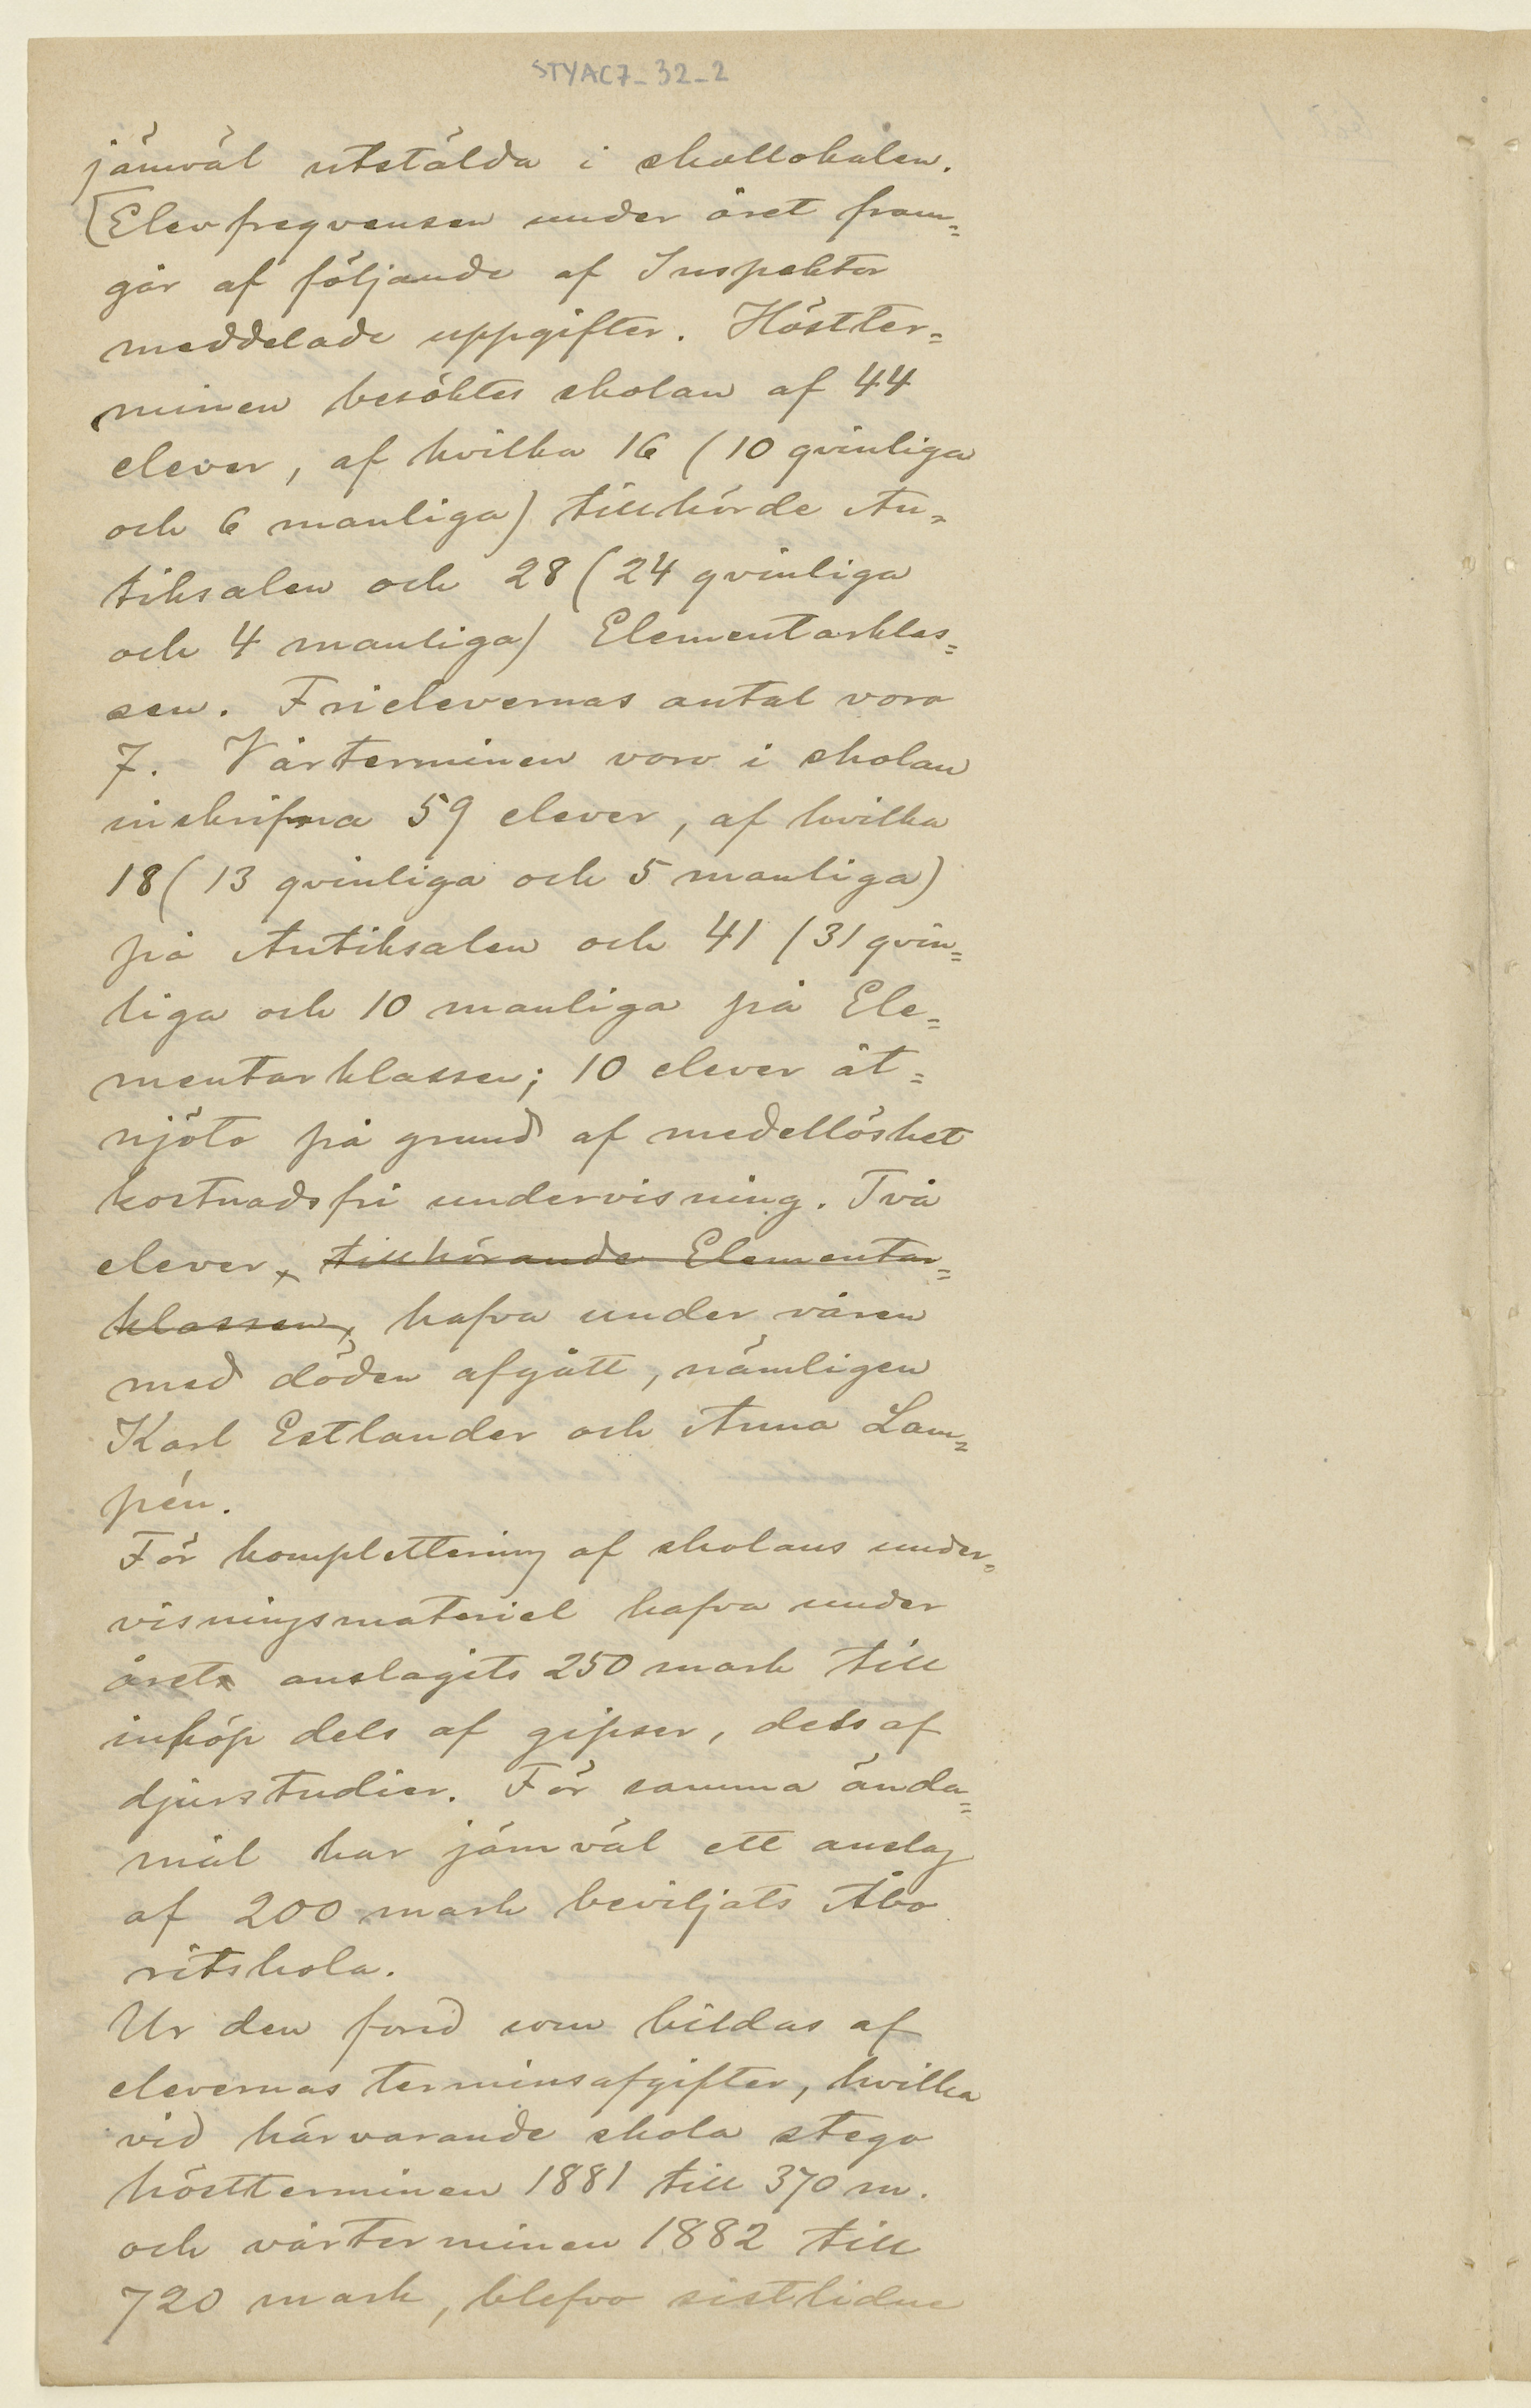 STYAC7_32_2
jämväl utstälda i skollokalen.
[Elevfreqvensen under året fram=
går af följande af Inspektor
meddelade uppgifter. Höstter=
minen besöktes skolan af 44
elever, af hvilka 16 (10 qvinliga
och 6 manliga) tillhörde An=
tiksalen och 28 (24 qvinliga
och 4 manliga) Elementarklas=
sen. Frielevernas antal voro
7. Vårterminen voro i skolan
inskrifna 59 elever, af hvilka
18 (13 qvinliga och 5 manliga)
på Antiksalen och 41 (31 qvin=
liga och 10 manliga på Ele=
mentarklassen; 10 elever åt=
njöto på grund af medellöshet
kostnadsfri undervisning. Två
elever, tillhörande Elementar=
klassen, hafva under våren
med döden afgått, nämligen
Karl Estlander och Anna Lam=
pén.
För komplettering af skolans under=
visningsmateriel hafva under
året anslagits 250 mark till
inköp dels af gipser, dels af
djurstudier. För samma ända=
mål har jämväl ett anslag
af 200 mark beviljats Åbo
ritskola.
Ur den fond som bildas af
elevernas terminsafgifter, hvilka
vid härvarande skola stego
höstterminen 1881 till 370 m.
och vårterminen 1882 till
720 mark, blefvo sistlidne